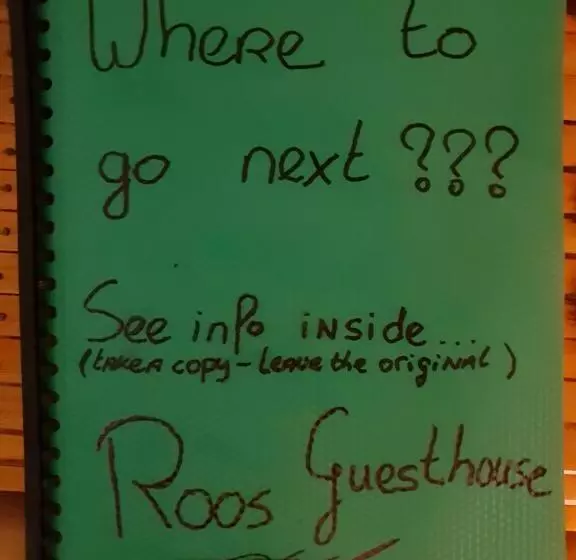 Where to
go next ???
See info inside...
(take a copy - leave the original)
Roos Guesthouse